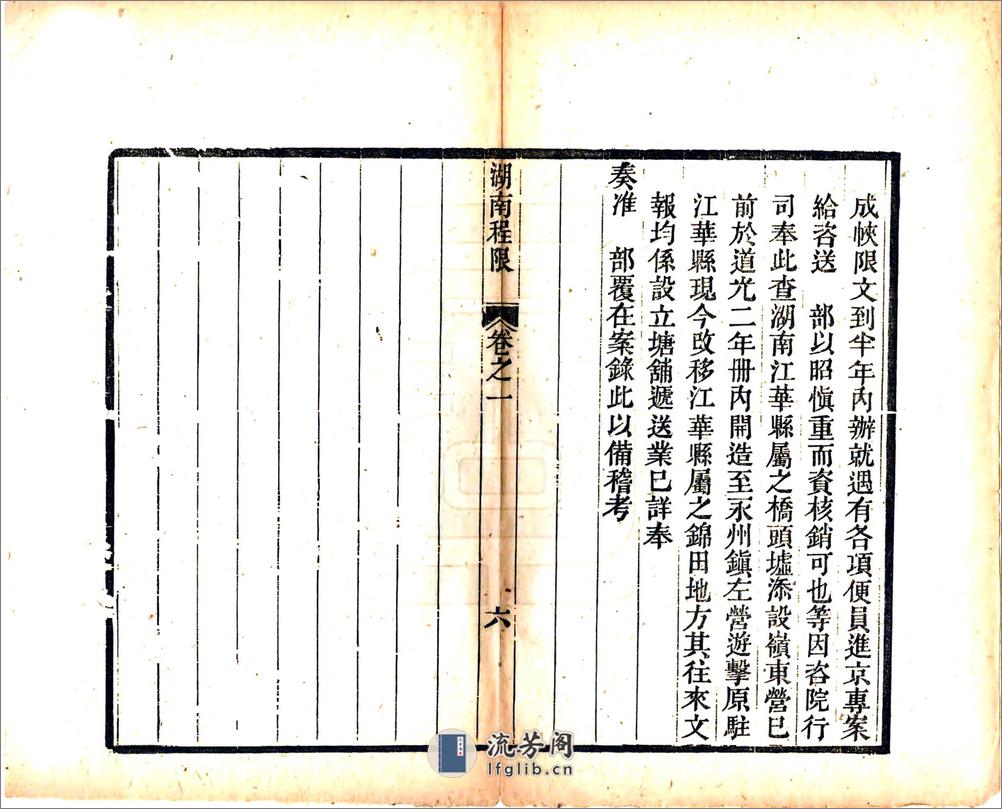 成帙限文到半年內辦就遇有各項便員進京專案
給咨送　部以昭慎重而資核銷可也等因咨院行
司奉此查湖南江華縣屬之橋頭墟添設嶺東營已
前於道光二年冊內開造至永州鎮左營遊擊原駐
江華縣現今改移江華縣屬之錦田地方其往來文
報均係設立塘舖遞送業已詳奉
奏准　部覆在案錄此以備稽考
湖南程限　卷之一　六
流芳阁
lfglib.cn